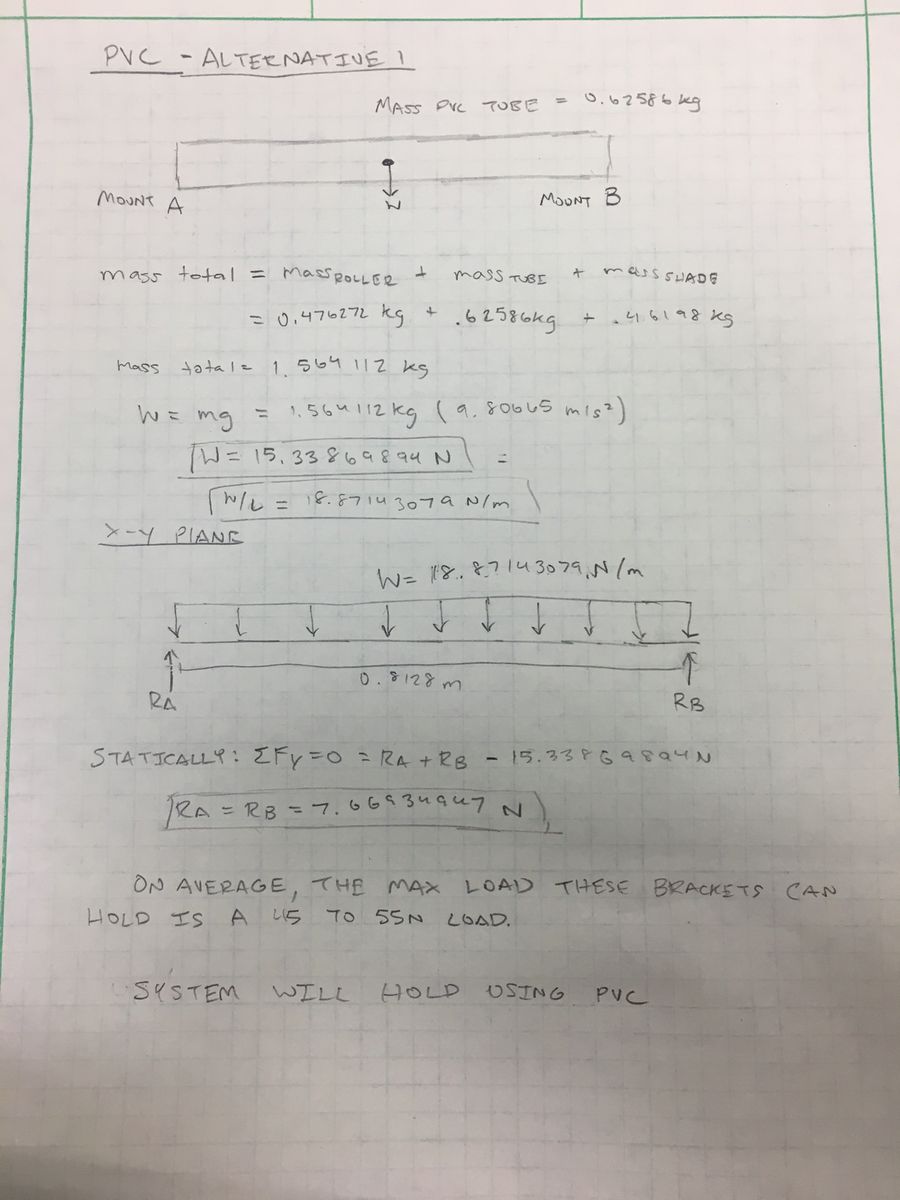 PVC - ALTERNATIVE 1
MASS PVC TUBE = 0.62586 kg
W
MOUNT A
MOUNT B
mass total = mass ROLLER + mass TUBE + mass SHADE
= 0.476272 kg + .62586kg + .46198 kg
mass total = 1.564112 kg
W = mg = 1.564112kg (9.80665 m/s²)
W = 15.33869894 N =
W/L = 18.87143079 N/m
X-Y PLANE
W = 18.87143079 N/m
0.8128 m
RA
RB
STATICALLY: ΣFy=0 = RA + RB - 15.33869894N
RA = RB = 7.66934947 N
ON AVERAGE, THE MAX LOAD THESE BRACKETS CAN
HOLD IS A 45 TO 55N LOAD.
SYSTEM WILL HOLD USING PVC